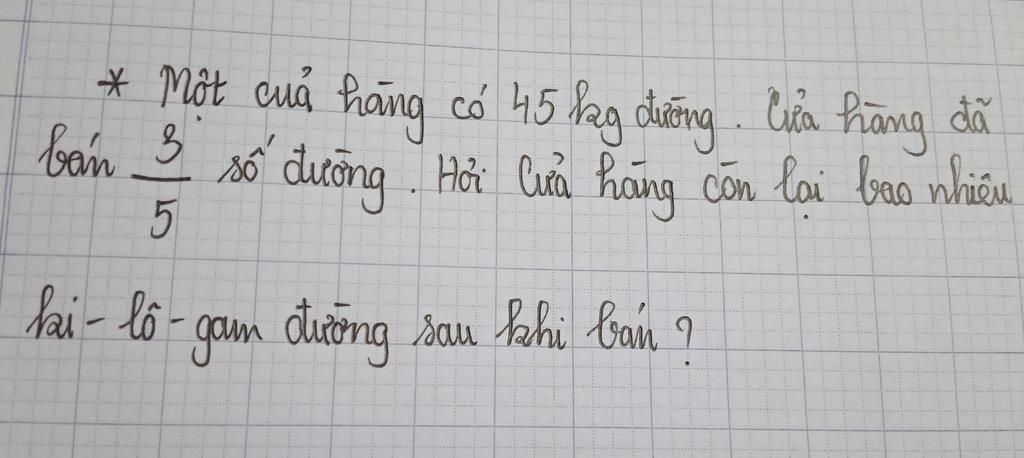 * Một cuả hàng có 45 kg đường. Cửa hàng đã
bán 3/5 số đường. Hỏi Cửa hàng còn lại bao nhiêu
ki-lô-gam đường sau khi bán?